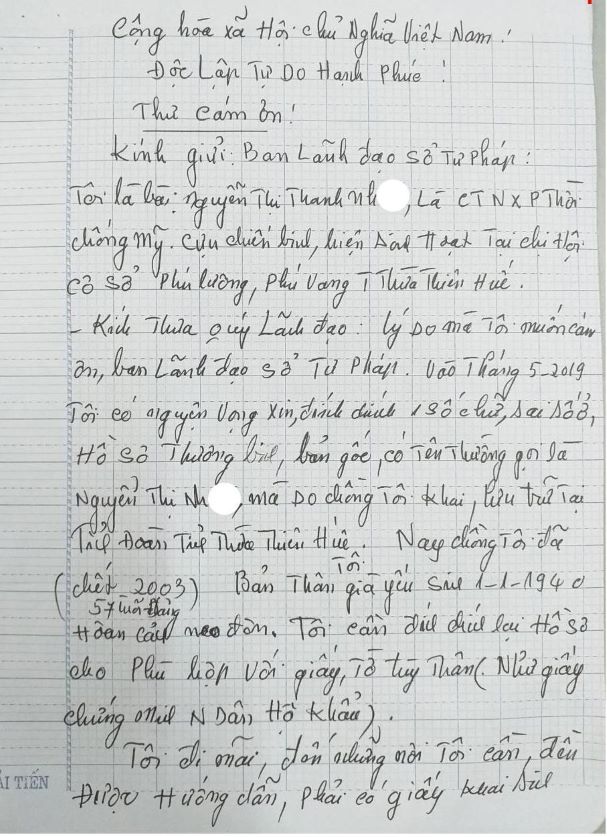 Cộng hòa xã Hội chủ Nghĩa Việt Nam!
Độc Lập Tự Do Hạnh Phúc!
Thư Cám Ơn!
Kính giửi: Ban Lãnh đạo sở Tư Pháp:
Tôi là bà: Nguyễn Thị Thanh Nh , Là CTNXP Thời
chống mỹ. Cựu chiến binh, hiện sinh Hoạt Tại chi Hội
cô sở Phú lương, Phú Vang T Thừa Thiên Huế.
- Kích Thưa quý Lãnh đạo: lý do mà Tôi muốn cám
ơn, ban Lãnh đạo sở Tư Pháp. Vào Tháng 5-2019
Tôi có nguyện Vọng Xin, đính chính 1 số chữ, sai sót,
Hồ sơ Thương binh, bản gốc, có Tên Thường gọi là
Nguyễn Thị Nh , mà Do chồng Tôi khai, lưu trữ Tại
Thiên Huế. Nay chồng Tôi đã
(chết 2003) Bản Thân Tôi già yếu sinh 1-1-1940
57 tuổi đảng
Hoàn cảnh neo đơn. Tôi cần đính chính lại Hồ sơ
cho Phù hợp với giấy, Tờ tùy Thân (Như giấy
chứng minh N Dân Hộ Khẩu).
Tôi đi mãi, đến những nơi Tôi cần, đều
Được Hướng dẫn, Phải có giấy khai sinh
ẢI TIẾN